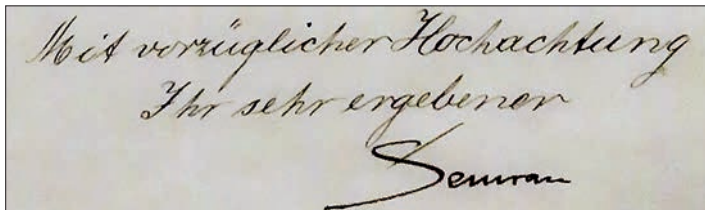 Mit vorzüglicher Hochachtung
Ihr sehr ergebener